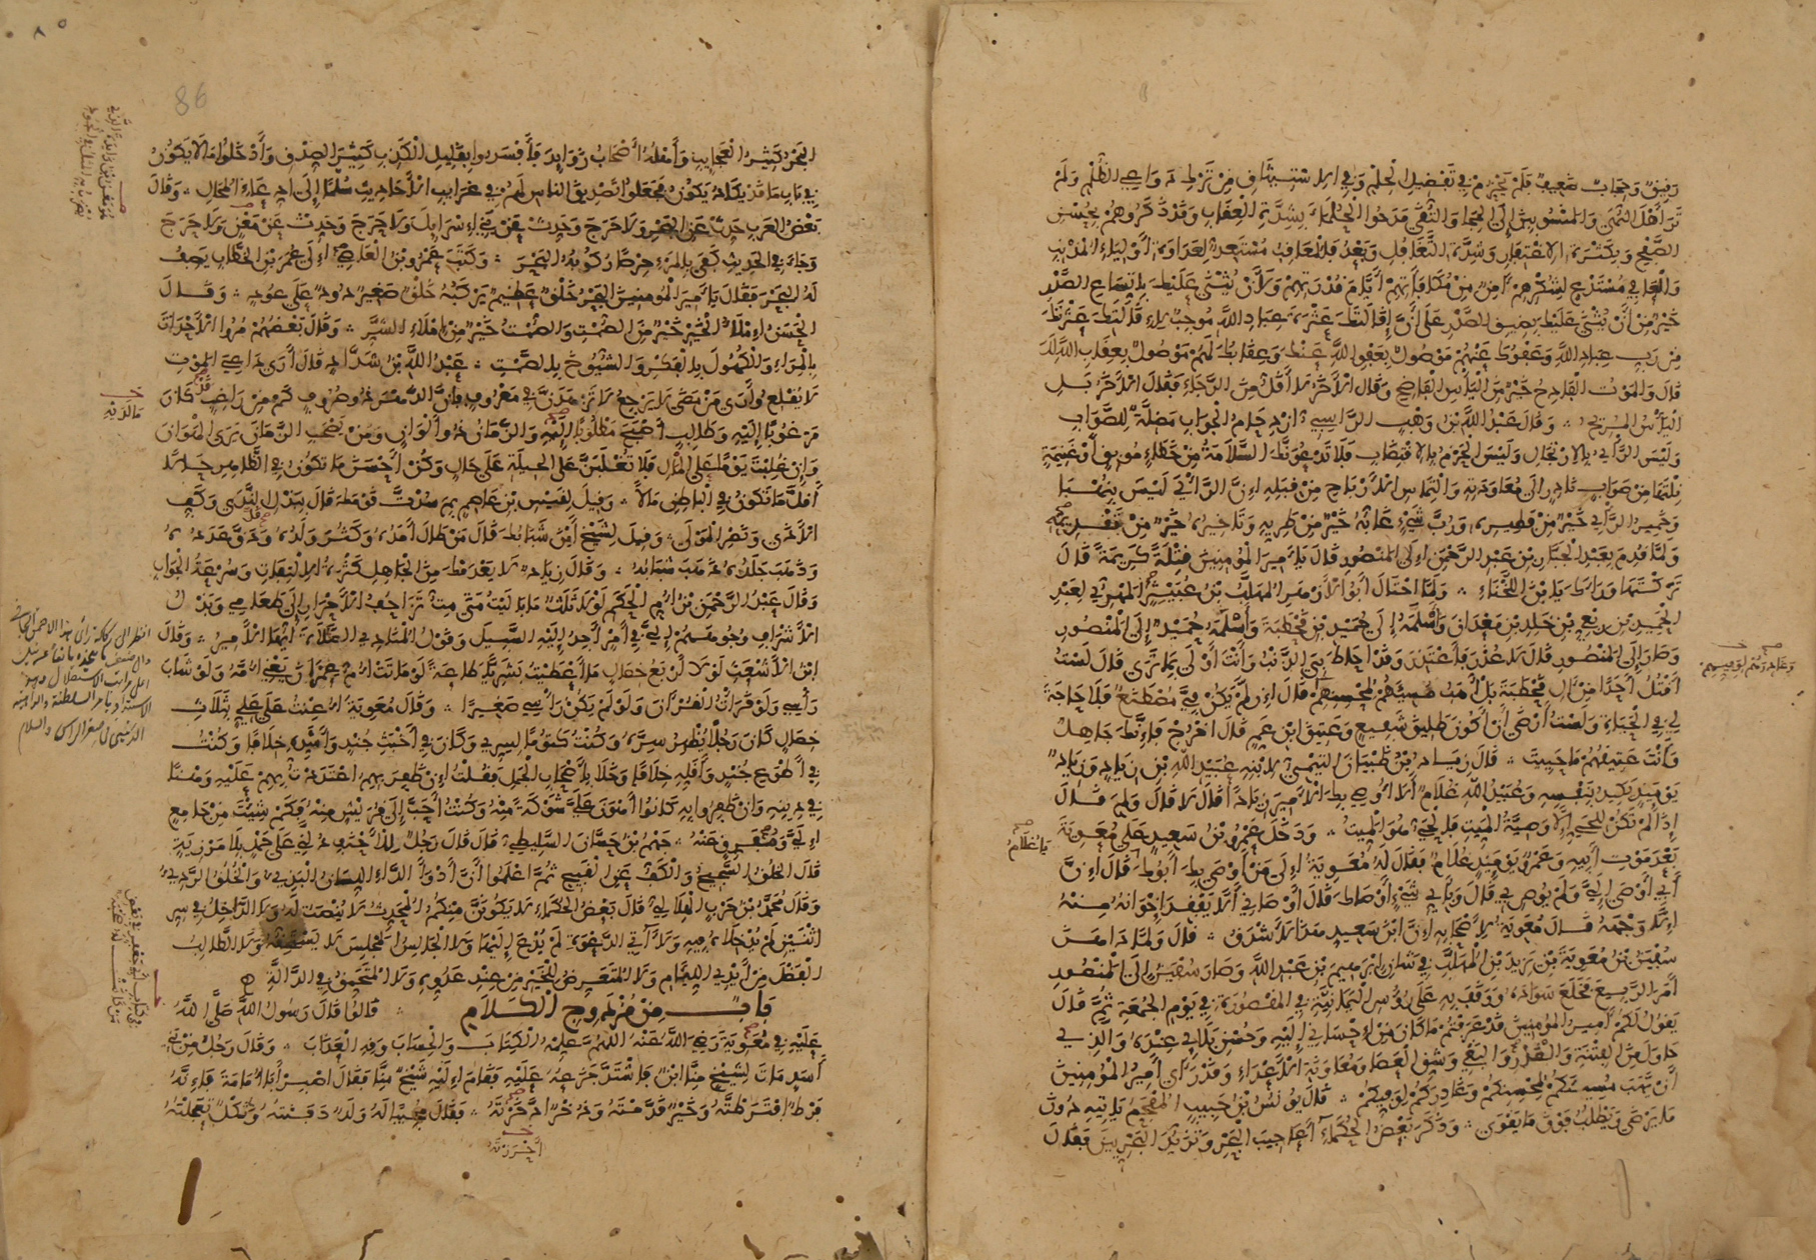 رفيق وحجاب ضعيف فلم يحزم في تفضيل الحلم وفي الاستيثاق من ترك دواعي الظلم ولم
تر أهل النهى والمنسوبين إلى الحجا والتقى مدحوا الحلماء بشدة العقاب وقد ذكروهم بحسن
الصفح وبكثرة الاغتفار وشدة التغافل وبعد فالمعاقب مستعد لعداوة أولياء المذنب
والعافي مستدع لشكرهم آمن من مكافاتهم أيام قدرتهم ولأن يثنى عليك باتساع الصدر
خير من أن يثنى عليك بضيق الصدر على أن إقالتك عثرة عباد الله موجب لإقالتك عثرتك
من رب عباد الله وعفوك عنهم موصول بعفو الله عنك وعقابك لهم موصول بعقاب الله لك
قال والموت الفادح خير من اليأس الفاضح وقال الآخر لا أقل من الرجاء فقال الآخر بل
اليأس المريح ؞ وقال عبد الله بن وهب الراسبي ازدحام الجواب مضلة للصواب
وليس الرأي بالارتجال وليس الحزم بالاقتضاب فلا تدعونك السلامة من خطاء موبق أو غنيمة
نلتها من صواب نادر إلى معاودته والتماس الأرباح من قبله إن الرأي ليس بنهبى
وخمير الرأي خير من فطيره ورب شيء غابه خير من طريه وتأخيره خير من تقديمه
ولما قدم بعبد الجبار بن عبد الرحمن إلى المنصور قال يا أمير المؤمنين قتلة كريمة قال
تركتها وراءك يا ابن اللخناء ؞ ولما احتال أبو الأزهر المهلب بن عبيثر المهري لعبد
الحميد بن ربعي بن خالد بن معدان وأسلمه إلى حميد بن قحطبة وأسلمه حميد إلى المنصور
وصار إلى المنصور قال لا عذر فأعتذر وقد أحاط بي الذنب وأنت أولى بما ترى قال لست
أقتل أحدا من آل قحطبة بل أهب مسيئهم لمحسنهم قال إن لم يكن في مصطنع فلا حاجة
لي في الحياة ولست أرضى أن أكون طليق شفيع وعتيق ابن عم قال اخرج فإنك جاهل
وأنت عتيقهم ما حييت ؞ قال زياد بن ظبيان التيمي لابنه عبيد الله بن زياد وزياد
يومئذ يكيد بنفسه وعبيد الله غلام ألا أوصي بك الأمير زيادا قال لا قال ولم قال
إذا لم تكن للحي إلا وصية الميت فالحي هو الميت ؞ ودخل عمرو بن سعيد على معوية
بعد موت أبيه وعمرو يومئذ غلام فقال له معوية إلى من أوصى بك أبوك قال إن
أبي أوصى إلي ولم يوص بي قال وبأي شيء أوصاك قال أوصاني ألا يفقد إخوانه منه
إلا وجهه قال معوية لأصحابه إن ابن سعيد هذا لأشدق ؞ قال ولما داهن
سفين بن معوية بن يزيد بن المهلب في شأن إبرهيم بن عبد الله وصار سفين إلى المنصور
أمر الربيع فخلع سواده ووقف به على رؤس اليمانية في المقصورة في يوم الجمعة ثم قال
يقول لكم أمير المؤمنين قد عرفتم ما كان من إحساني إليه وحسن بلائي عنده والذي
حاول من الفتنة والغدر والبغي وشق العصا ومعاونة الأعداء وقد رأى أمير المؤمنين
أن يهب مسيئكم لمحسنكم وغادركم لوفيكم ؞ قال يونس بن حبيب المفحم يأتيه دون
ما يرضى ويطلب فوق ما يقوى ؞ وذكر بعض الحكماء أعاجيب البحر وتزيد البحريين فقال
وغادرهم لوفيهم
يا غلام
البحر كثير العجايب وأهله أصحاب زوايد فأفسدوا بقليل الكذب كثير الصدق وأدخلوا ما لا يكون
في باب ما قد يكاد يكون فجعلوا تصديق الناس لهم في غرايب الأحاديث سلما إلى ادعاء المحال ؞ وقال
بعض العرب حدث عن البحر ولا حرج وحدث عن بني إسرايل ولا حرج وحدث عن معن ولا حرج
وجاء في الحديث كفى بالمرء حرصا ركوبه البحر ؞ وكتب عمرو بن العاصي إلى عمر بن الخطاب يصف
له البحر فقال يا أمير المؤمنين البحر خلق عظيم يركبه خلق صغير دود على عود ؞ وقال
الحسن إملاء الخير خير من الصمت والصمت خير من إملاء الشر ؞ وقال بعضهم مروا الأحداث
بالمراء والكهول بالفكر والشيوخ بالصمت ؞ عبد الله بن شداد قال أرى داعي الموت
لا يقلع وأرى من مضى لا يرجع لا تزهدن في معروف فإن الدهر ذو صروف كم من راغب كان
مرغوبا إليه وطالب أصبح مطلوبا إليه والزمان ذو ألوان ومن يصحب الزمان يرى الهوان
وإن غلبت يوما على المال فلا تغلبن على الحيلة على حال وكن أحسن ما تكون في الظاهر حالا
أقل ما تكون في الباطن مالا ؞ وقيل لقيس بن عاصم بم سدت قومك قال ببذل الندى وكف
الأذى ونصر المولى ؞ وقيل لشيخ أين شبابك قال من طال أمده وكثر ولده ودق عدده
وذهب جلده ذهب شبابه ؞ وقال زياد لا يعدمك من الجاهل كثرة الالتفات وسرعة الجواب
وقال عبد الرحمن بن أم الحكم لولا ثلاث ما باليت متى مت تزاحف الأحرار إلى طعامي وبذل
الأشراف وجوههم إلي في أمر أجد إليه السبيل وقول المنادي الصلاة أيها الأمير ؞ وقال
ابن الأشعث لولا أربع خصال ما أعطيت بشريا طاعة لو ماتت أم عمران يعني أمه ولو شاب
رأسي ولو قرأت القرآن ولو لم يكن رأسي صغيرا ؞ وقال معوية أعنت على علي بثلاث
خصال كان رجلا يظهر سره وكنت كتوما لسري وكان في أخبث جند وأشده خلافا وكنت
في أطوع جند وأقله خلافا وخلا بأصحاب الجمل فقلت إن ظفر بهم اعتددت بهم عليه وهنا
في دينه وإن ظفروا به كانوا أهون علي شوكة منه وكنت أحب إلى قريش منه فكم شئت من جامع
إلي ومفرق عنه ؞ جهم بن حسان السليطي قال قال رجل للأحنف دلني على حمد بلا مرزية
قال الخلق السجيح والكف عن القبيح ثم اعلموا أن أدوأ الداء اللسان البذي والخلق الردي
وقال محمد بن حرب الهلالي قال بعض الحكماء لا يكونن منكم المحدث لا ينصت له ولا الداخل في سر
اثنين لم يدخلاه فيه ولا آتي الدعوة لم يدع إليها ولا الجالس المجلس لا يستحقه ولا الطالب
الفضل من أيدي اللئام ولا المتعرض للخير من عند عدوه ولا المتحمق في الدالة
باب من مزدوج الكلام ؞ قالوا قال رسول الله صلى الله
عليه في معوية رضي الله عنه اللهم علمه الكتاب والحساب وقه العذاب ؞ وقال رجل من بني
أسد مات لشيخ منا ابن فاشتد جزعه عليه فقام إليه شيخ منا فقال اصبر أبا أمامة فإنه
فرط افترطته وخير قدمته وذخر ادخرته ؞ فقال مجيبا له ولد دفنته وثكل تعجلته
أحرزته
86